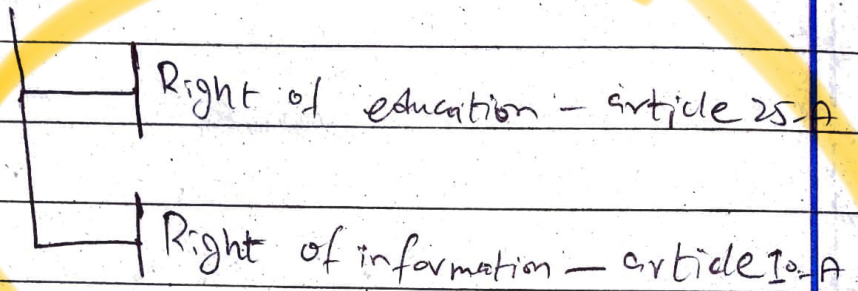 Right of education - article 25-A
Right of information - article 10-A